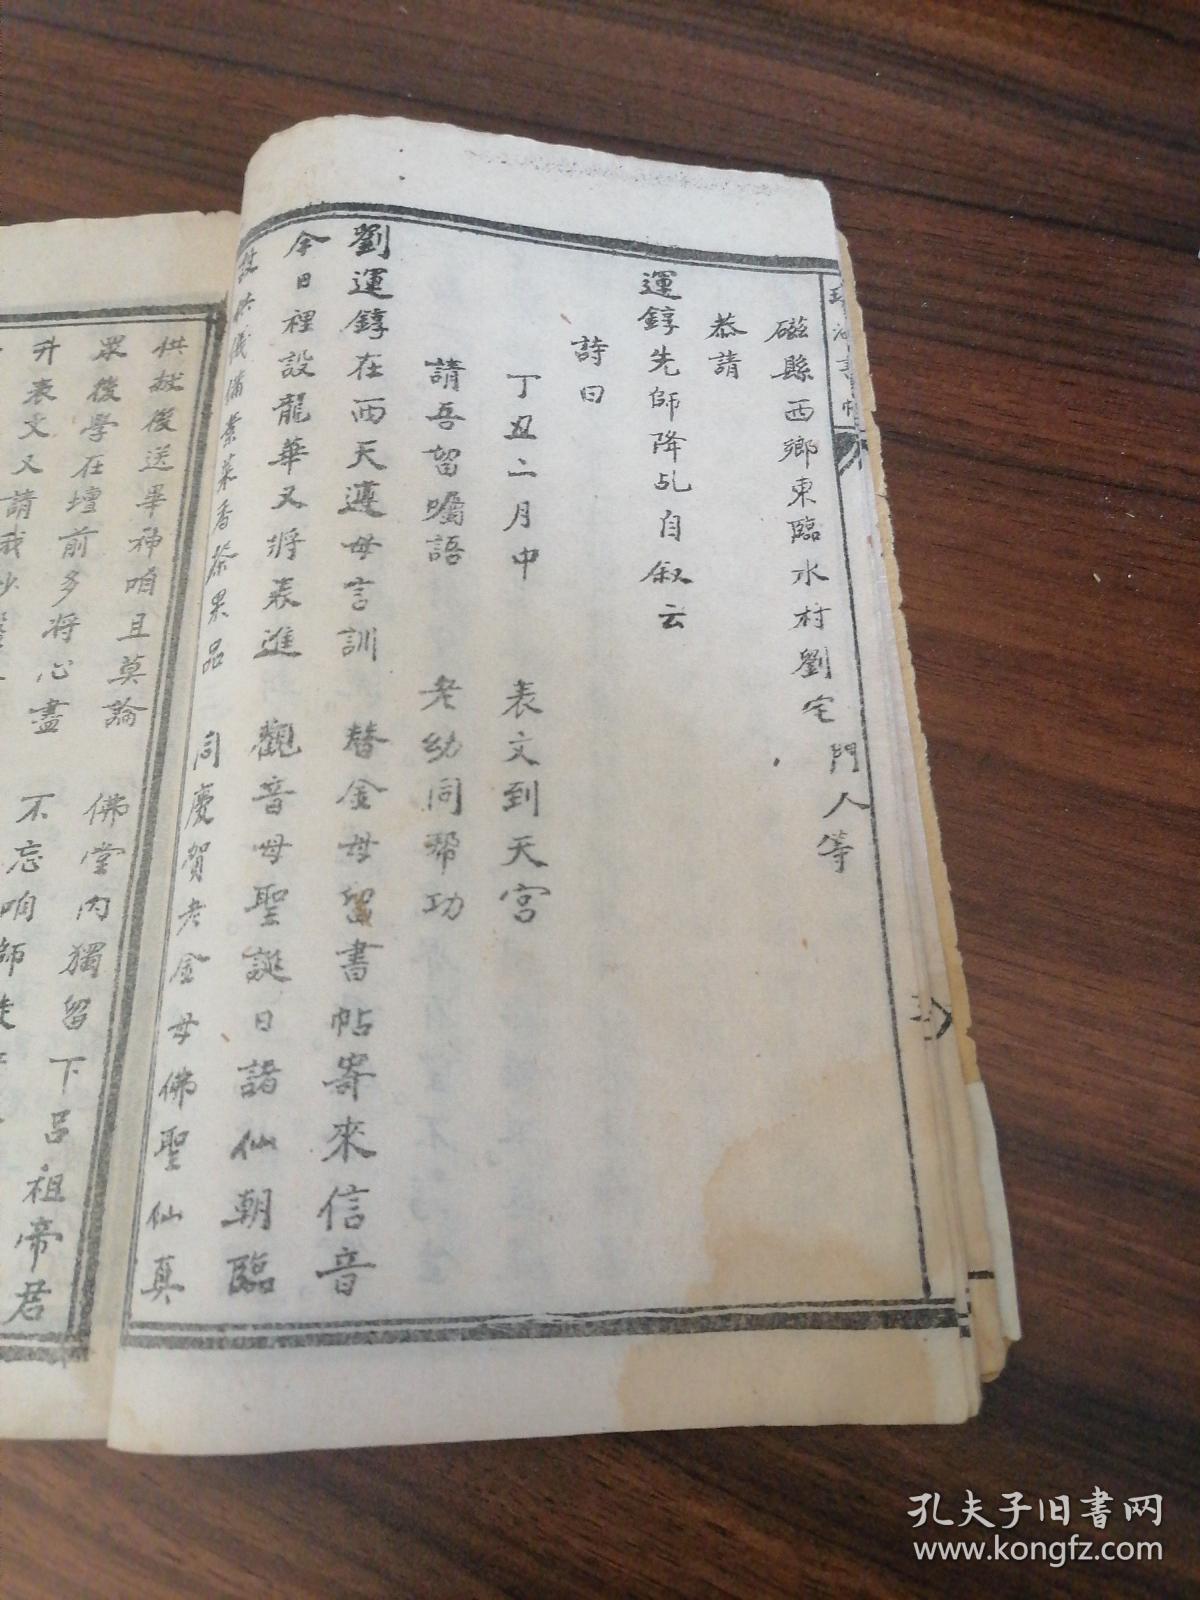 磁縣西鄉東臨水村劉宅門人等
恭請
運錞先師降乩自叙云
詩曰
丁丑二月中　表文到天宮
請吾留囑語　老幼同帮功
劉運錞在西天遵母言訓　替金母留書帖寄來信音
今日裡設龍華又將表進　觀音母聖誕日諸仙朝臨
設供儀備素菜香茶果品　同慶賀老金母佛聖仙真
供献後送畢神咱且莫論　佛堂內獨留下呂祖帝君
眾後學在壇前多將心盡　不忘咱師徒
升表文又請我
孔夫子旧书网
www.kongfz.com